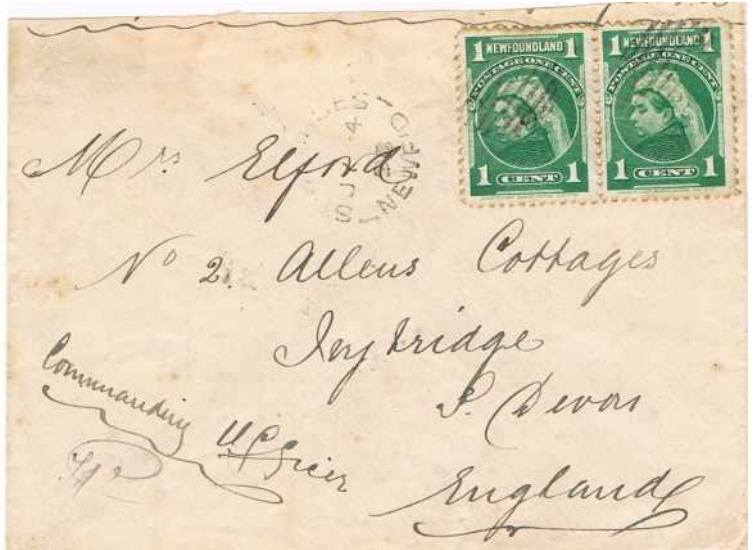 1 NEWFOUNDLAND 1
POSTAGE ONE CENT
1 CENT 1
1 NEWFOUNDLAND 1
POSTAGE ONE CENT
1 CENT 1
NEWFD
Mrs Elford
No 2. Allens Cottages
Ivybridge
S. Devon
England
Commanding
Officer